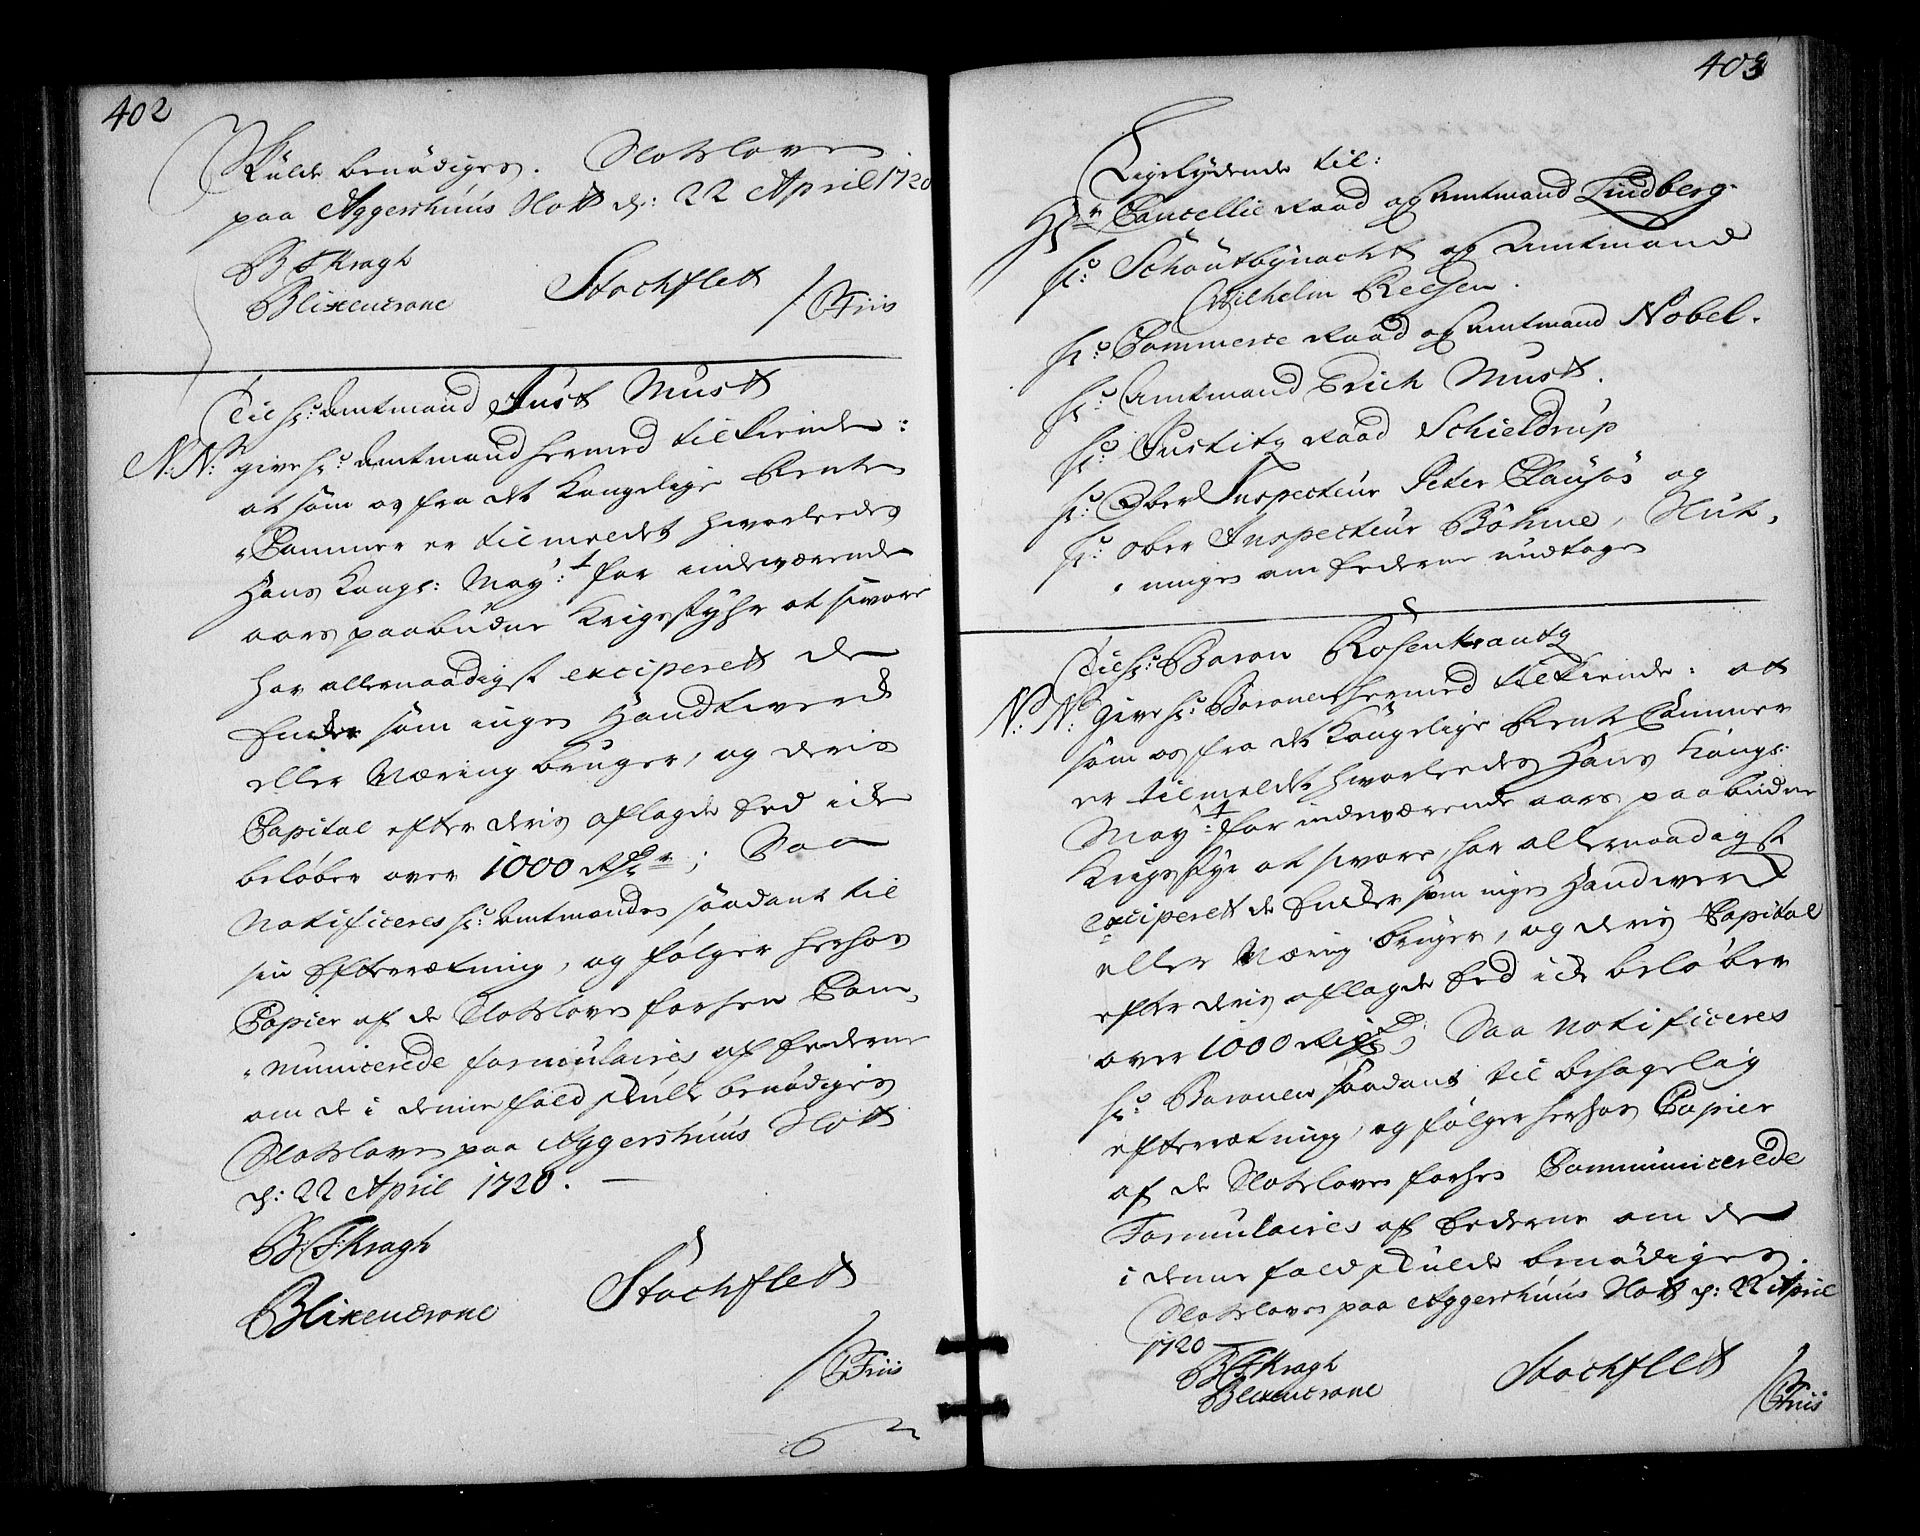 402
Skulde benødiges. Slotsloven
paa Aggershuus Slott d: 22 April 1720
B F Kragh
Blixencrone Stochflett
/ C Friis
Til hr: Amtmand Just Must
N: N: give hr: Amtmand hermed tilkiende:
at som os fra det Kongelige Rente
Cammer er tilmeldet hvorleedes
Hans Kongl: May:t for indeværende
aars paabudne Krigsstyhr at svare
har allernaadigst exciperett de
Enker som ingen Handtwerck
eller Næring bruger, og deris
Capital efter deris aflagde Eed icke
beløber over 1000 Rdr; Saa
Notificeres hr: Amtmanden saadant til
sin Efterrætning, og følger herhos
Copier af de Slotsloven forhen Com
municerede formulaires af Eederne
om de i denne fald skulle benødiges
Slotsloven paa Aggershuus Slott
d: 22 April 1720.
B: F: Kragh
Blixencrone Stochflett
/ C Friis
403
Ligelydende til:
Hr Cancellie Raad og Amtmand Lindberg.
hr: Schoutbynacht og Amtmand
Wilhelm Reesen.
hr: Commerce Raad og Amtmand Nobel.
hr: Amtmand Erich Must.
hr: Justitz Raad Schieldrup
hr: Ober Inspecteur Peter Clausøs og
hr: ober Inspecteur Böhme, Slut,
ninges om Eederne undtagen
Til hr: Baron Rosenkrantz
N: N: Give hr: Baronen hermed tilkiende: at
som os fra det Kongelige Rente Cammer
er tilmeldet hvorleedes Hans Kongl:
May:t for indeværende aars paabudne
Krigsstyr at svare, har allernaadigst
exciperett de Enker som ingen Handwerck
eller Næring bruger, og deris Capital
efter deris aflagde Eed icke beløber
over 1000 Rixd; Saa Notificeres
hr: Baronen saadant til behagelig
efterrætning, og følger herhos Copier
af de Slotsloven forhen Communicerede
Formulaires af Eederne om de
i denne fald skulde benødiges.
Slotsloven paa Aggershuus Slott d: 22 April
1720
B F Kragh Stochflett
Blixencrone / C Friis